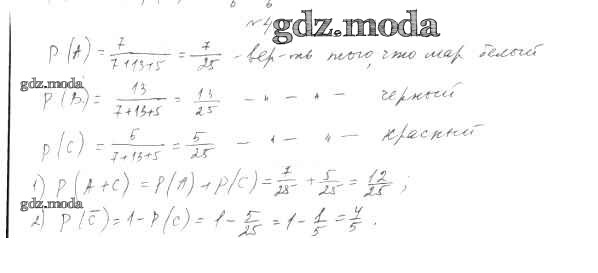 №4
gdz.moda
P(A) = 7/(7+13+5) = 7/25 - вер-ть того, что шар белый
gdz.moda
P(B) = 13/(7+13+5) = 13/25 — " — " — черный
P(C) = 5/(7+13+5) = 5/25 — " — " — красный
1) P(A+C) = P(A) + P(C) = 7/25 + 5/25 = 12/25 ;
gdz.moda
2) P(C̄) = 1 - P(C) = 1 - 5/25 = 1 - 1/5 = 4/5 .